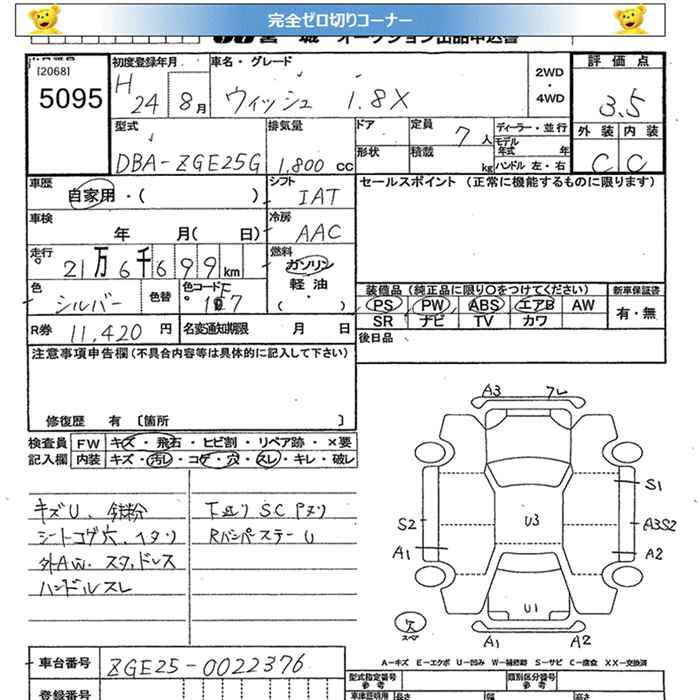 完全ゼロ切りコーナー
宮 城 オークション出品申込書
[2068]
5095
初度登録年月
H 24 8月
車名・グレード
ウィッシュ 1.8X
2WD
・
4WD
評価点
3.5
外装 内装
C C
型式
DBA-ZGE25G
排気量
1,800 CC
ドア
形状
定員 7人
積載 kg
ディーラー・並行
モデル年式 年
ハンドル 左・右
車歴
自家用・( )
シフト
IAT
セールスポイント (正常に機能するものに限ります)
車検
年 月( 日)
冷房
AAC
走行
21万6千699km
燃料
ガソリン
軽油
( )
色
シルバー
色替
色コード
1F7
装備品 (純正品に限り○をつけてください)
新車保証書
PS PW ABS エアB AW
SR ナビ TV カワ
有・無
R券 11,420 円
名変通知期限 月 日
後日品
注意事項申告欄(不具合内容等は具体的に記入して下さい)
修復歴 有 〔箇所 〕
検査員 FW キズ・飛石・ヒビ割・リペア跡・×要
記入欄 内装 キズ・汚レ・コゲ・穴・スレ・キレ・破レ
キズU、鉄粉
シートコゲ穴、ヘタリ
外AW、スタッドレス
ハンドルスレ
下廻り SC Pヌリ
RバンパーステーU
A3 フレ
S1
S2
U3
A3S2
A1
A2
U1
欠
スペア
A1 A2
A-キズ E-エクボ U-凹み W-補修跡 S-サビ C-腐食 XX-交換済
車台番号
ZGE25-0022376
登録番号
型式指定番号
参考
類別区分番号
参考
車庫証明用 長さ 幅 高さ